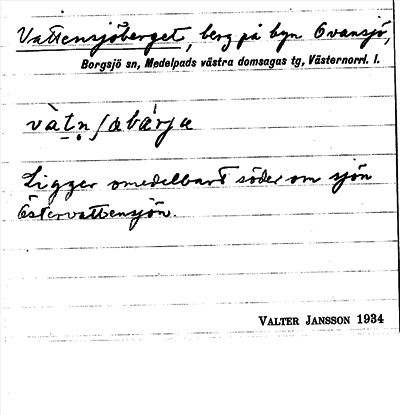 Vattensjöberget, berg på byn Ovansjö,
Borgsjö sn, Medelpads västra domsagas tg, Västernorrl. l.
Ligger omedelbart söder om sjön
Östervattensjön.
VALTER JANSSON 1934